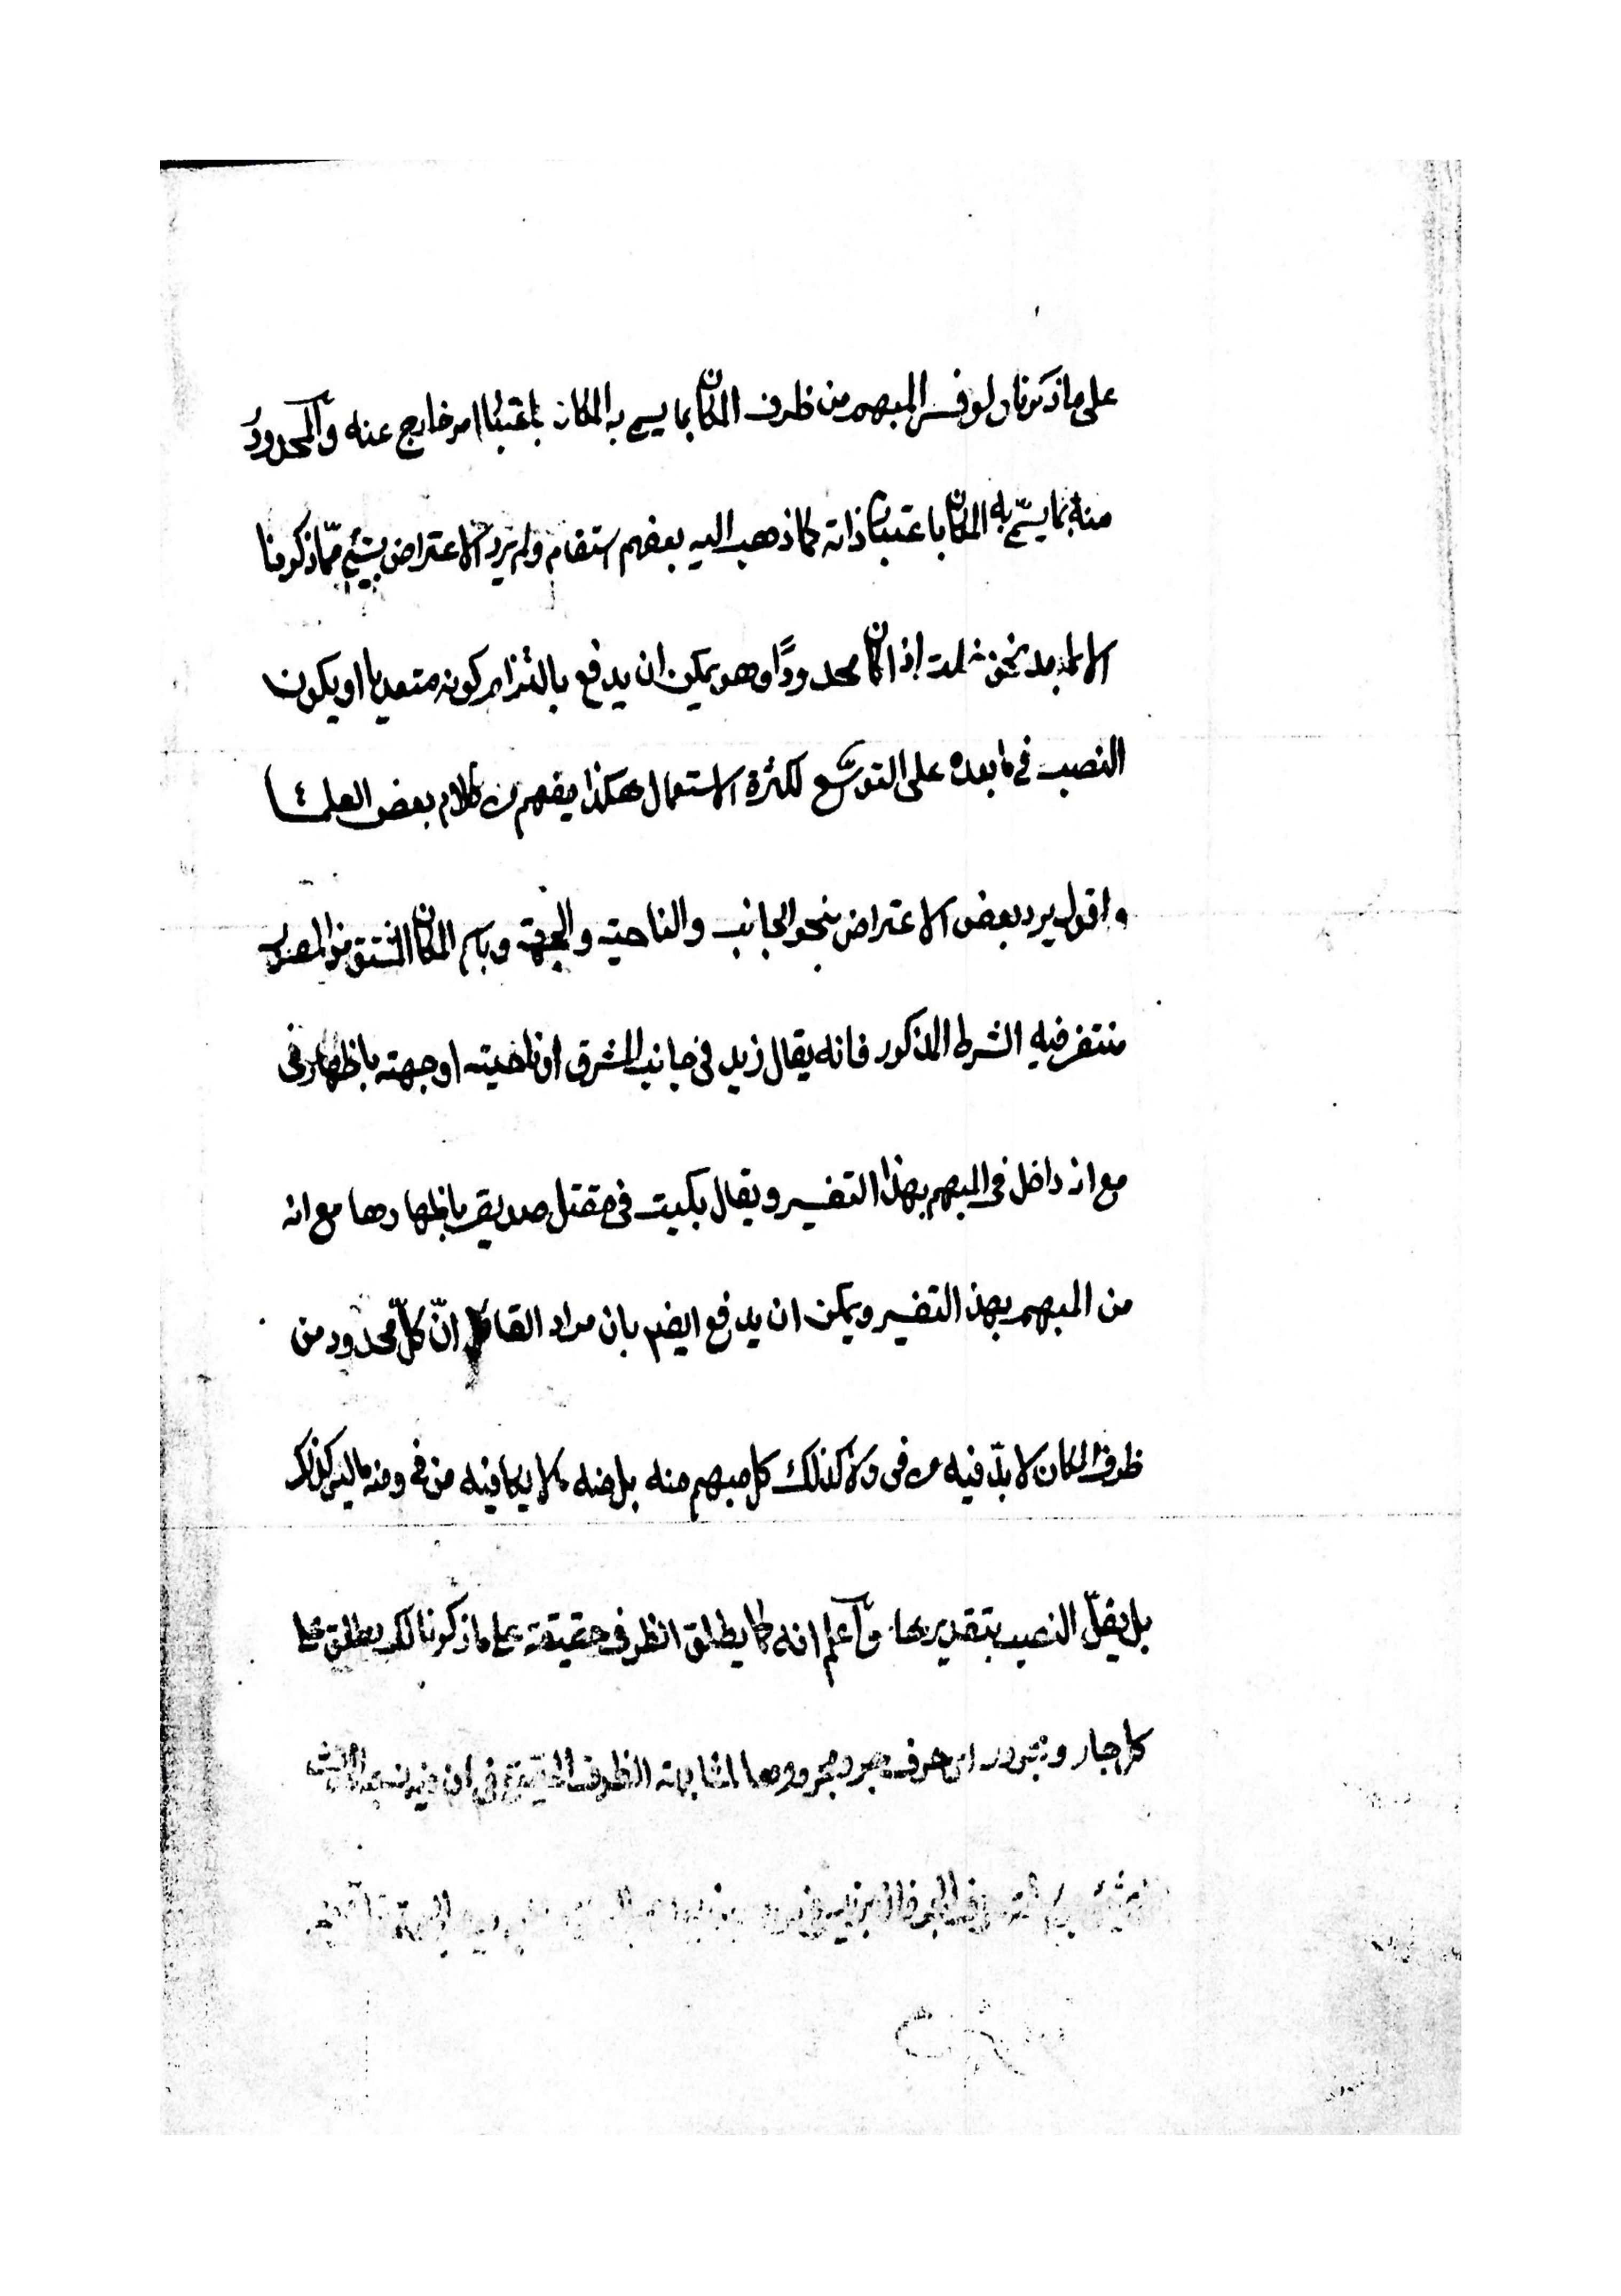 على ما ذكرنا ولو فسر المبهم من ظرف المكان بما يسمى به المكان باعتبار امر خارج عنه والمحدود
منه بما يسمّى به المكان باعتبار ذاته كما ذهب اليه بعضهم استقام ولم يرد الاعتراض بشئ ممّا ذكرونا
الا لما بعد نحو دخلت اذا كان محدودًا وهو يمكن ان يدفع بالتزام كونه متعديا او يكون
النصب في ما بعده على التوسّع لكثرة الاستعمال هكذا يفهم من كلام بعض العلماء
واقول يرد بعض الاعتراض بنحو الجانب والناحية والجهة وباسم المكان المشتق من المصدر
منتف فيه الشرط المذكور فانه يقال زيد في جانب المشرق او ناحيته او جهته باظهار في
مع انه داخل في المبهم بهذا التفسير ويقال بكيت في مقتل صديق باظهارها مع انه
من المبهم بهذ التفسير ويمكن ان يدفع ايضم بان مراد القائل انّ كلّ محدود من
ظرف المكان لا بدّ فيه من في ولا كذلك كل مبهم منه بل منه ما لا بد فيه من في ومنه ما ليس كذلك
بل يقلّ النصب بتقديرها وآعلم انه كما يطلق الظرف حقيقة على ما ذكرنا كذلك يطلق على
كل جار ومجرور اى حرف جر ومجرورها لمشابهته الظرف الحقيقي في ان